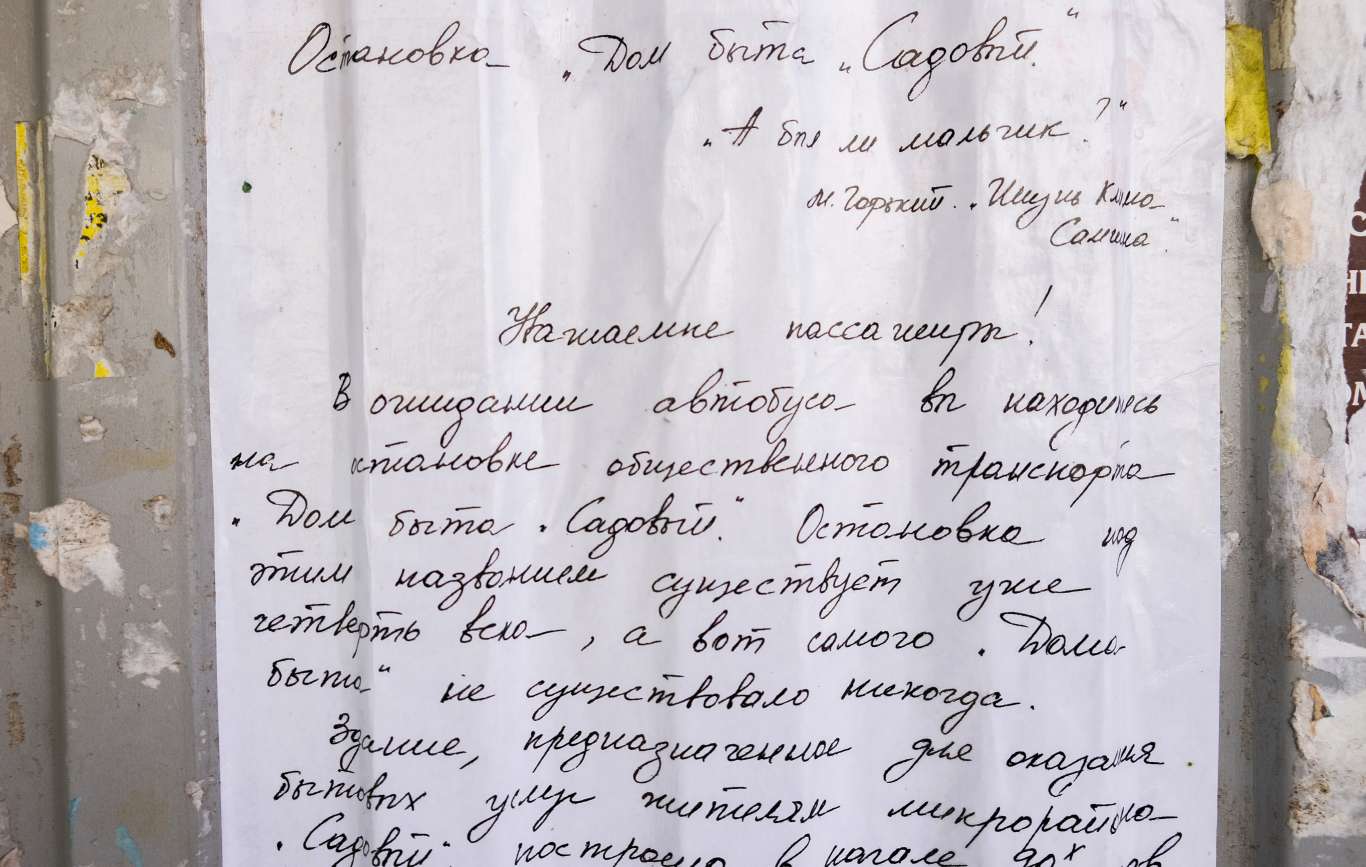 Остановка „Дом быта „Садовый".
„А был ли мальчик?"
М. Горький. „Жизнь Клима
Самгина".
Уважаемые пассажиры!
В ожидании автобуса вы находитесь
на остановке общественного транспорта
„Дом быта „Садовый". Остановка под
этим названием существует уже
четверть века, а вот самого „Дома
быта" не существовало никогда.
Здание, предназначенное для оказания
бытовых услуг жителям микрорайона
„Садовый" построено в начале 90х